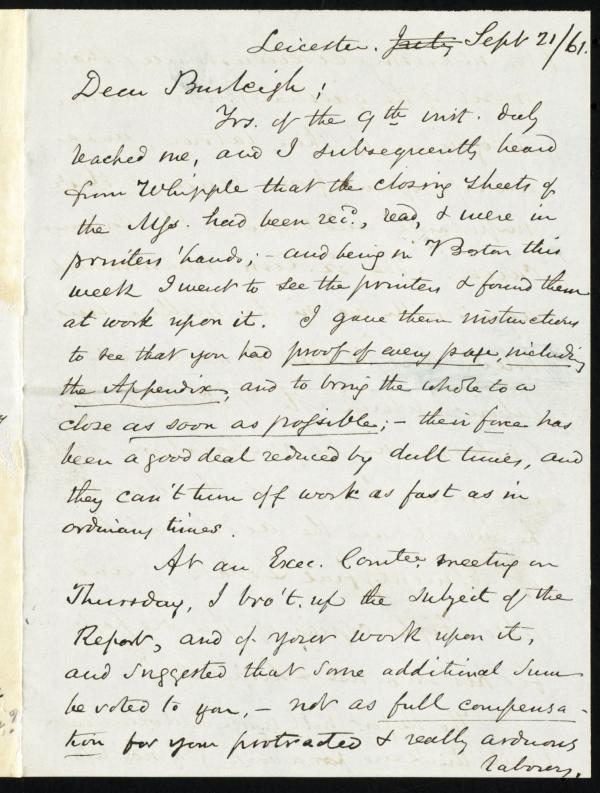 Leicester. July Sept 21/61.
Dear Burleigh;
Yrs. of the 9th inst. duly
reached me, and I subsequently heard
from Whipple that the closing sheets of
the Mss. had been rec'd., read, & were in
printers' hands; – and being in Boston this
week I went to see the printers & found them
at work upon it. I gave them instructions
to see that you had proof of every page, including
the Appendix, and to bring the whole to a
close as soon as possible; – their force has
been a good deal reduced by dull times, and
they can't turn off work as fast as in
ordinary times.
At an Exec. Comtee. meeting on
Thursday, I bro't. up the subject of the
Report, and of your work upon it,
and suggested that some additional sum
be voted to you, – not as full compensa-
tion for your protracted & really arduous
labors,